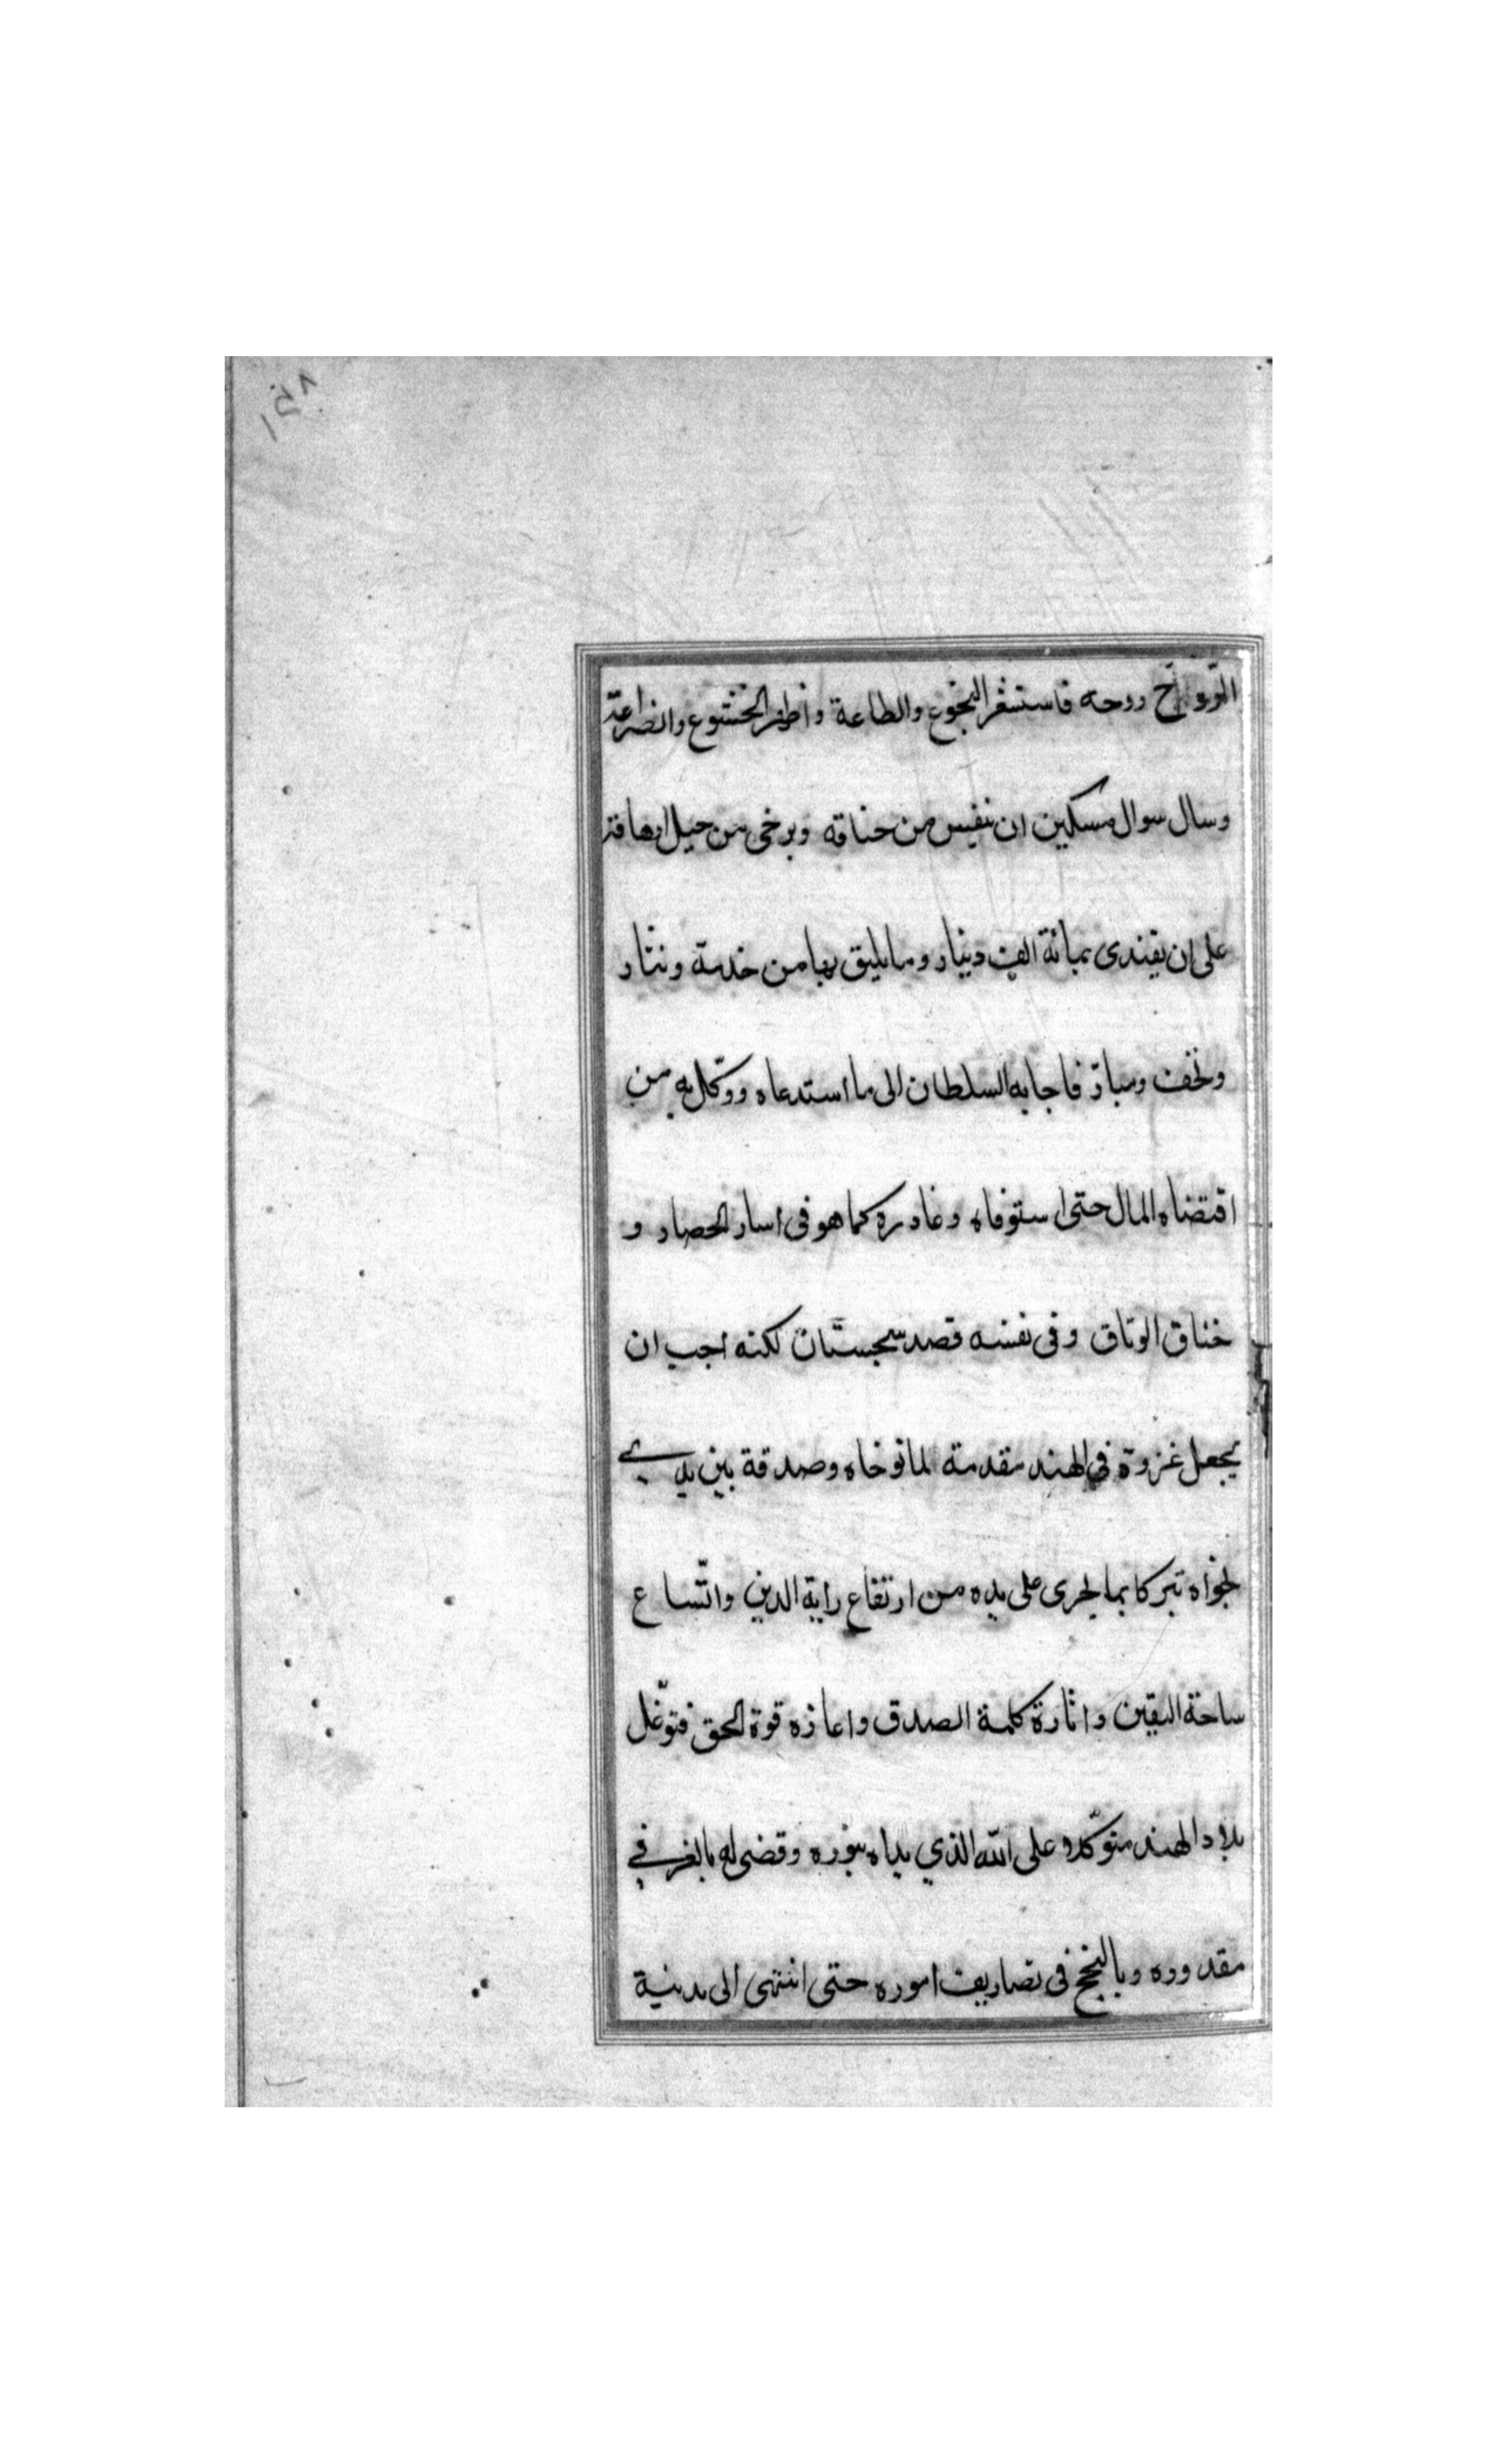 الرواح روحه فاستشفر البخوع والطاعة واظهر الخشوع والضراعة
وسال سوال مسكين ان ينفس من خناقه ويرخى من حبل ارهاقه
على ان يفتدى بمائة الف دينار وما يليق بها من خدمة ونثار
وتحف ومبارّ فاجابه السلطان الى ما استدعاه ووكّل به من
اقتضاه المال حتى استوفاه وغادره كما هو فى اسار الحصار و
خناق الوثاق وفى نفسه قصد سجستان لكنه احب ان
يجعل غزوة فى الهند مقدمة لما توخاه وصدقة بين يدي
نجواه تبركا بما يجرى على يده من ارتفاع راية الدين واتّساع
ساحة اليقين وانارة كلمة الصدق واعازه قوة الحق فتوغّل
بلاد الهند متوكّلا على الله الذي هداه بنوره وقضى له بالغر في
مقدوره وبالنجح فى تصاريف اموره حتى انتهى الى مدينة